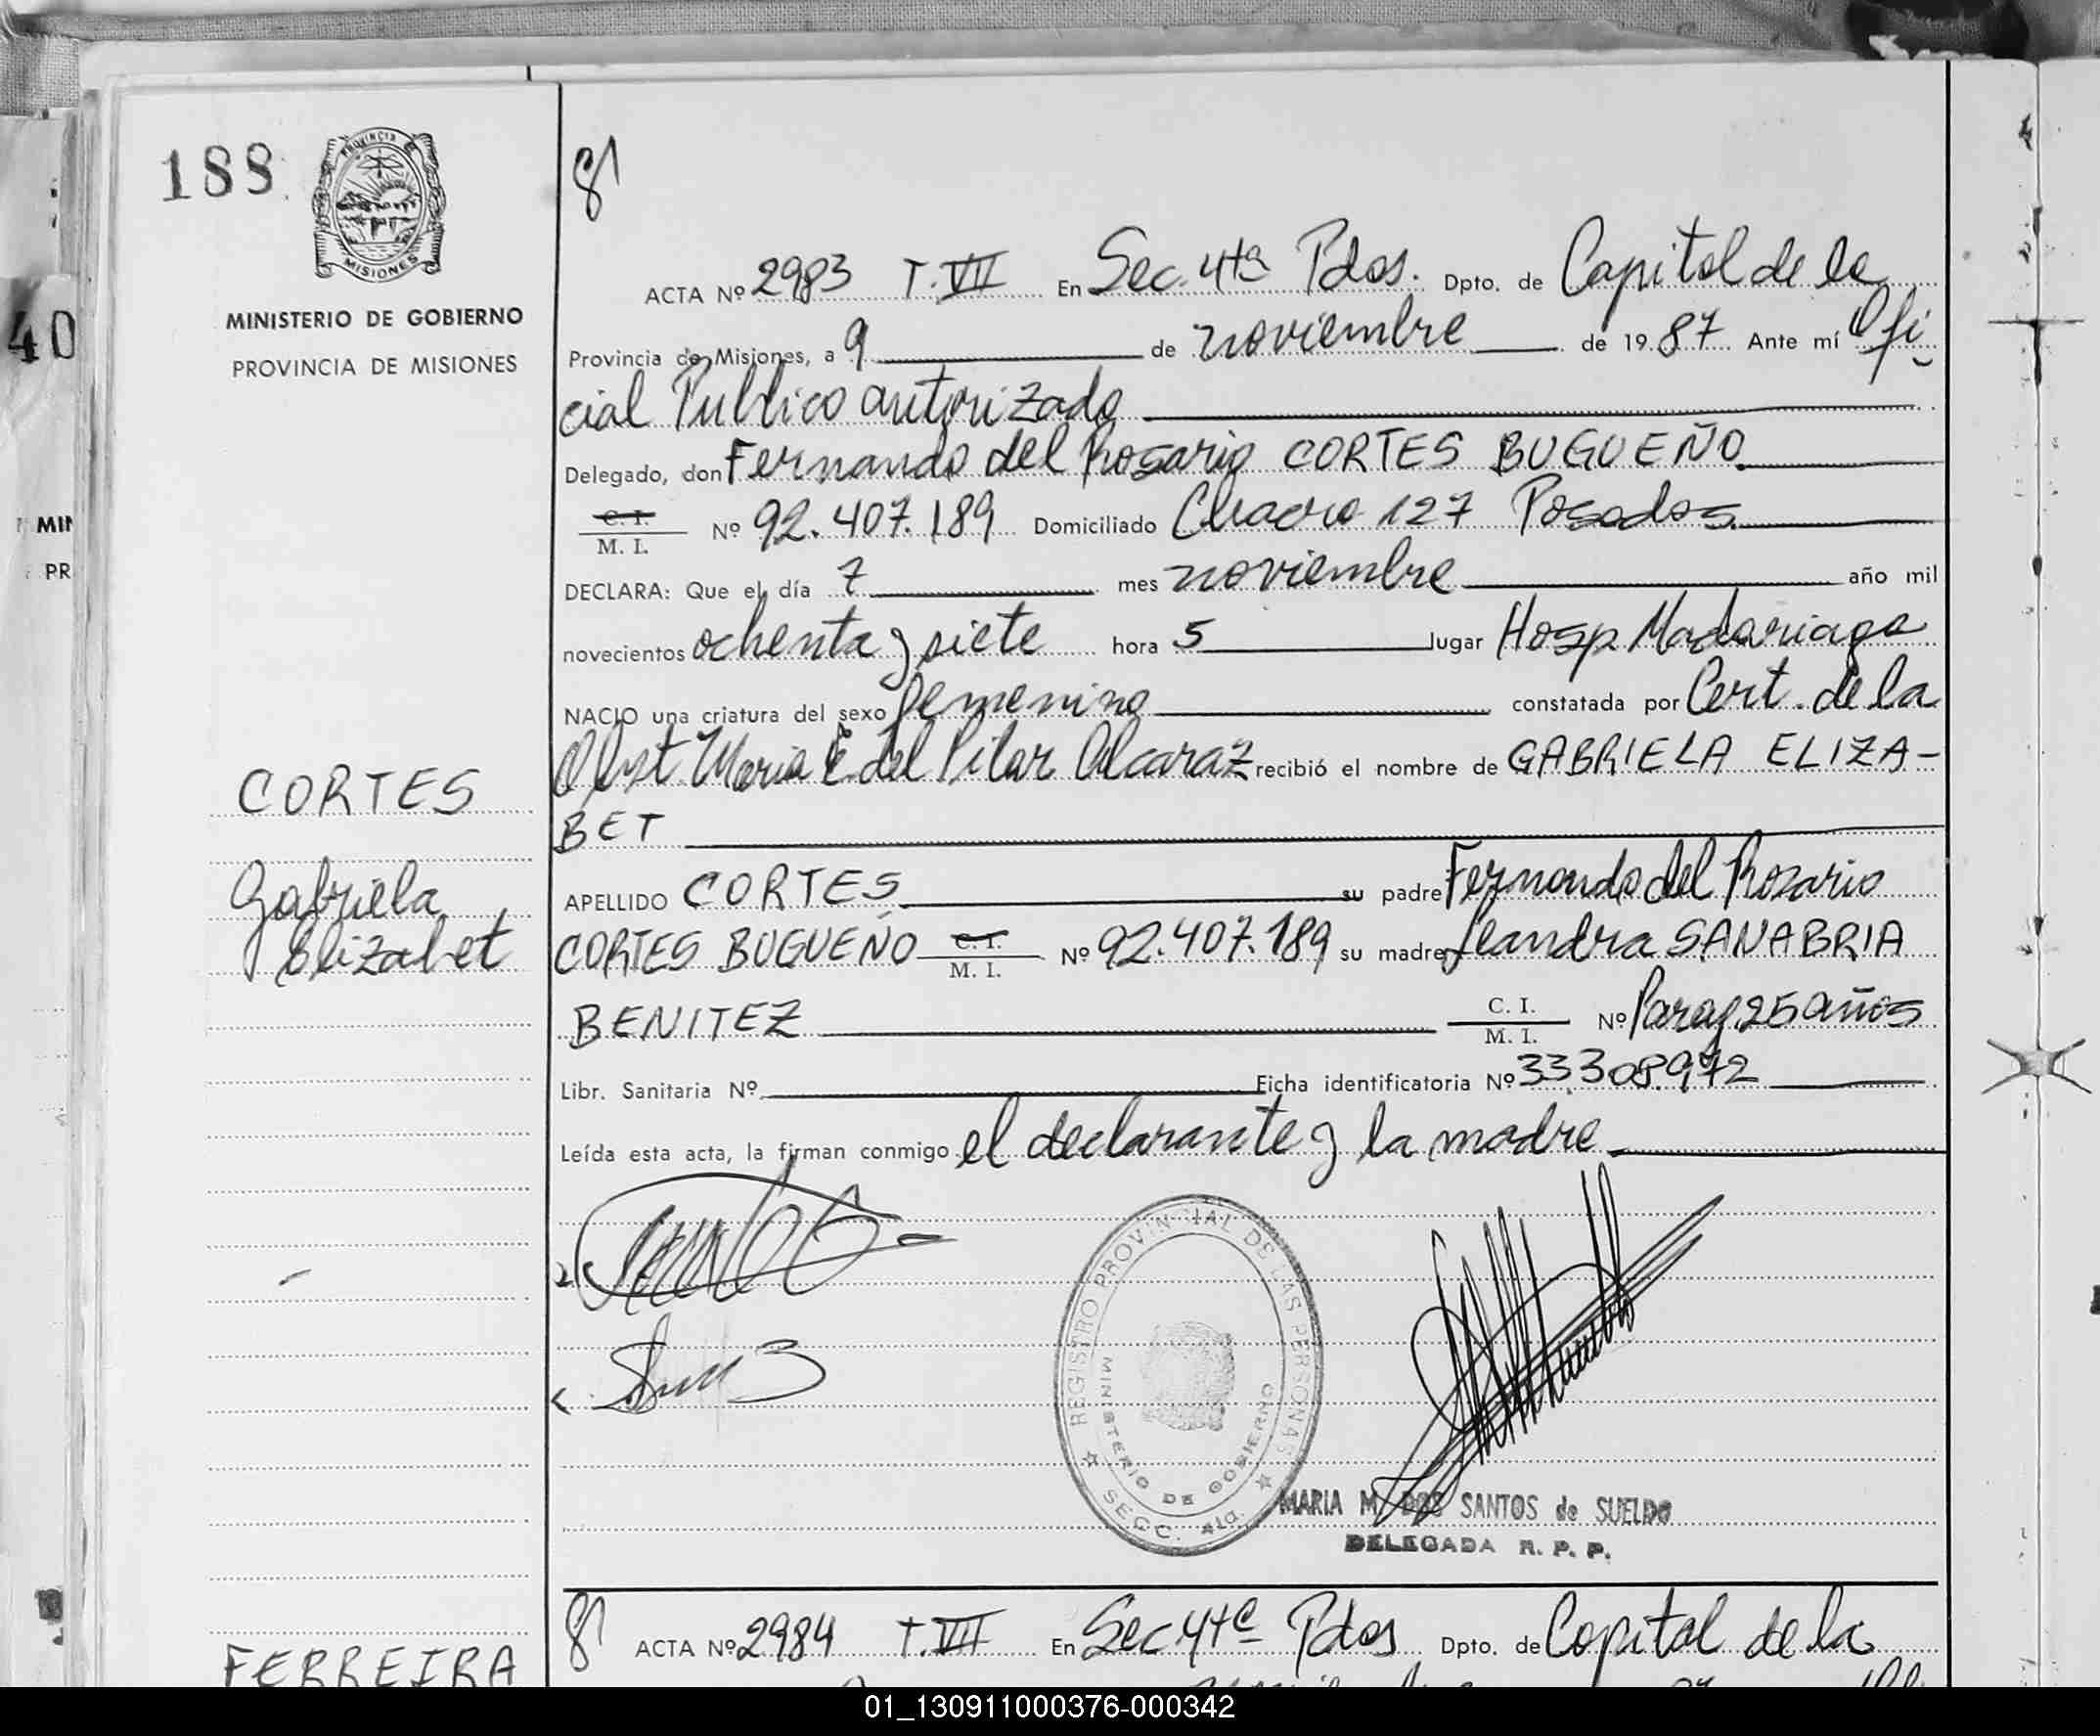 188
PROVINCIA DE
MISIONES
MINISTERIO DE GOBIERNO
PROVINCIA DE MISIONES
40
MIN
PR
CORTES
Gabriela
Elizabet
FERREIRA
ACTA Nº 2983 T. VII En Sec. 4ta Pdas. Dpto. de Capital de la
Provincia de Misiones, a 9 de noviembre de 1987 Ante mí Ofi-
cial Publico autorizado
Delegado, don Fernando del Rosario CORTES BUGUEÑO
C. I.
M. I. Nº 92.407.189 Domiciliado Chacra 127 Posadas
DECLARA: Que el día 7 mes noviembre año mil
novecientos ochenta y siete hora 5 lugar Hosp. Madariaga
NACIO una criatura del sexo femenino constatada por Cert. de la
Obst. Maria E. del Pilar Alcaraz recibió el nombre de GABRIELA ELIZA-
BET
APELLIDO CORTES su padre Fernando del Rozario
CORTES BUGUEÑO C. I. M. I. Nº 92.407.189 su madre Leandra SANABRIA
BENITEZ C. I. M. I. Nº Parag. 25 años
Libr. Sanitaria Nº Ficha identificatoria Nº 33308.972
Leída esta acta, la firman conmigo el declarante y la madre
REGISTRO PROVINCIAL DE LAS PERSONAS
MINISTERIO DE GOBIERNO
SECC. 4ta
MARIA M. DOS SANTOS de SUELDO
DELEGADA R. P. P.
ACTA Nº 2984 T. VII En Sec. 4ta Pdas Dpto. de Capital de la
01_130911000376-000342